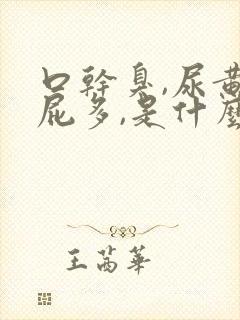 口幹臭,尿黃
屁多,是什麼
王茜華